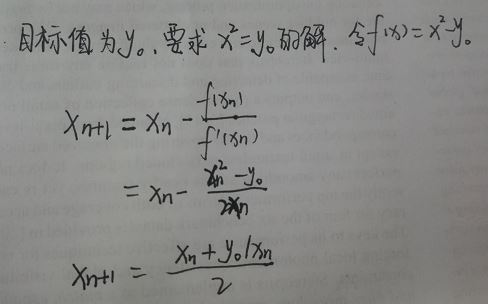 目标值为y₀,要求 x²=y₀的解. 令f(x)=x²-y₀
xₙ₊₁ = xₙ - f(xₙ)/f'(xₙ)
= xₙ - (xₙ²-y₀)/(2xₙ)
xₙ₊₁ = (xₙ+y₀/xₙ)/2